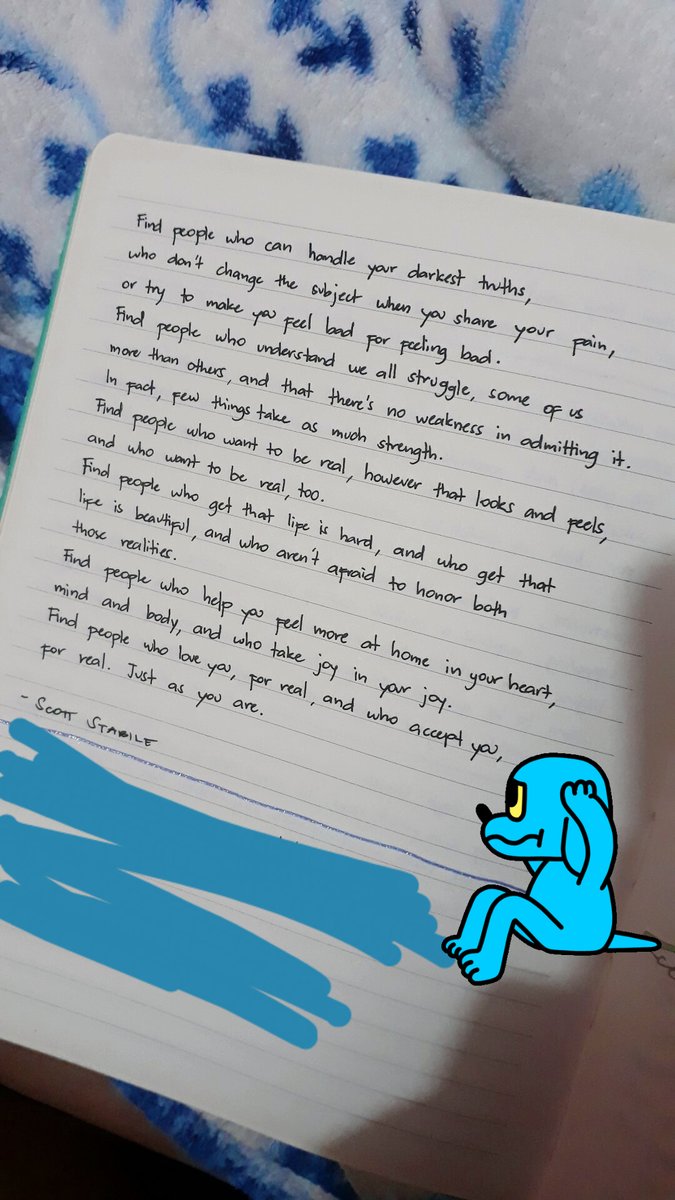 Find people who can handle your darkest truths,
who don't change the subject when you share your pain,
or try to make you feel bad for feeling bad.
Find people who understand we all struggle, some of us
more than others, and that there's no weakness in admitting it.
In fact, few things take as much strength.
Find people who want to be real, however that looks and feels,
and who want to be real, too.
Find people who get that life is hard, and who get that
life is beautiful, and who aren't afraid to honor both
those realities.
Find people who help you feel more at home in your heart,
mind and body, and who take joy in your joy.
Find people who love you, for real, and who accept you,
for real. Just as you are.
- SCOTT STABILE